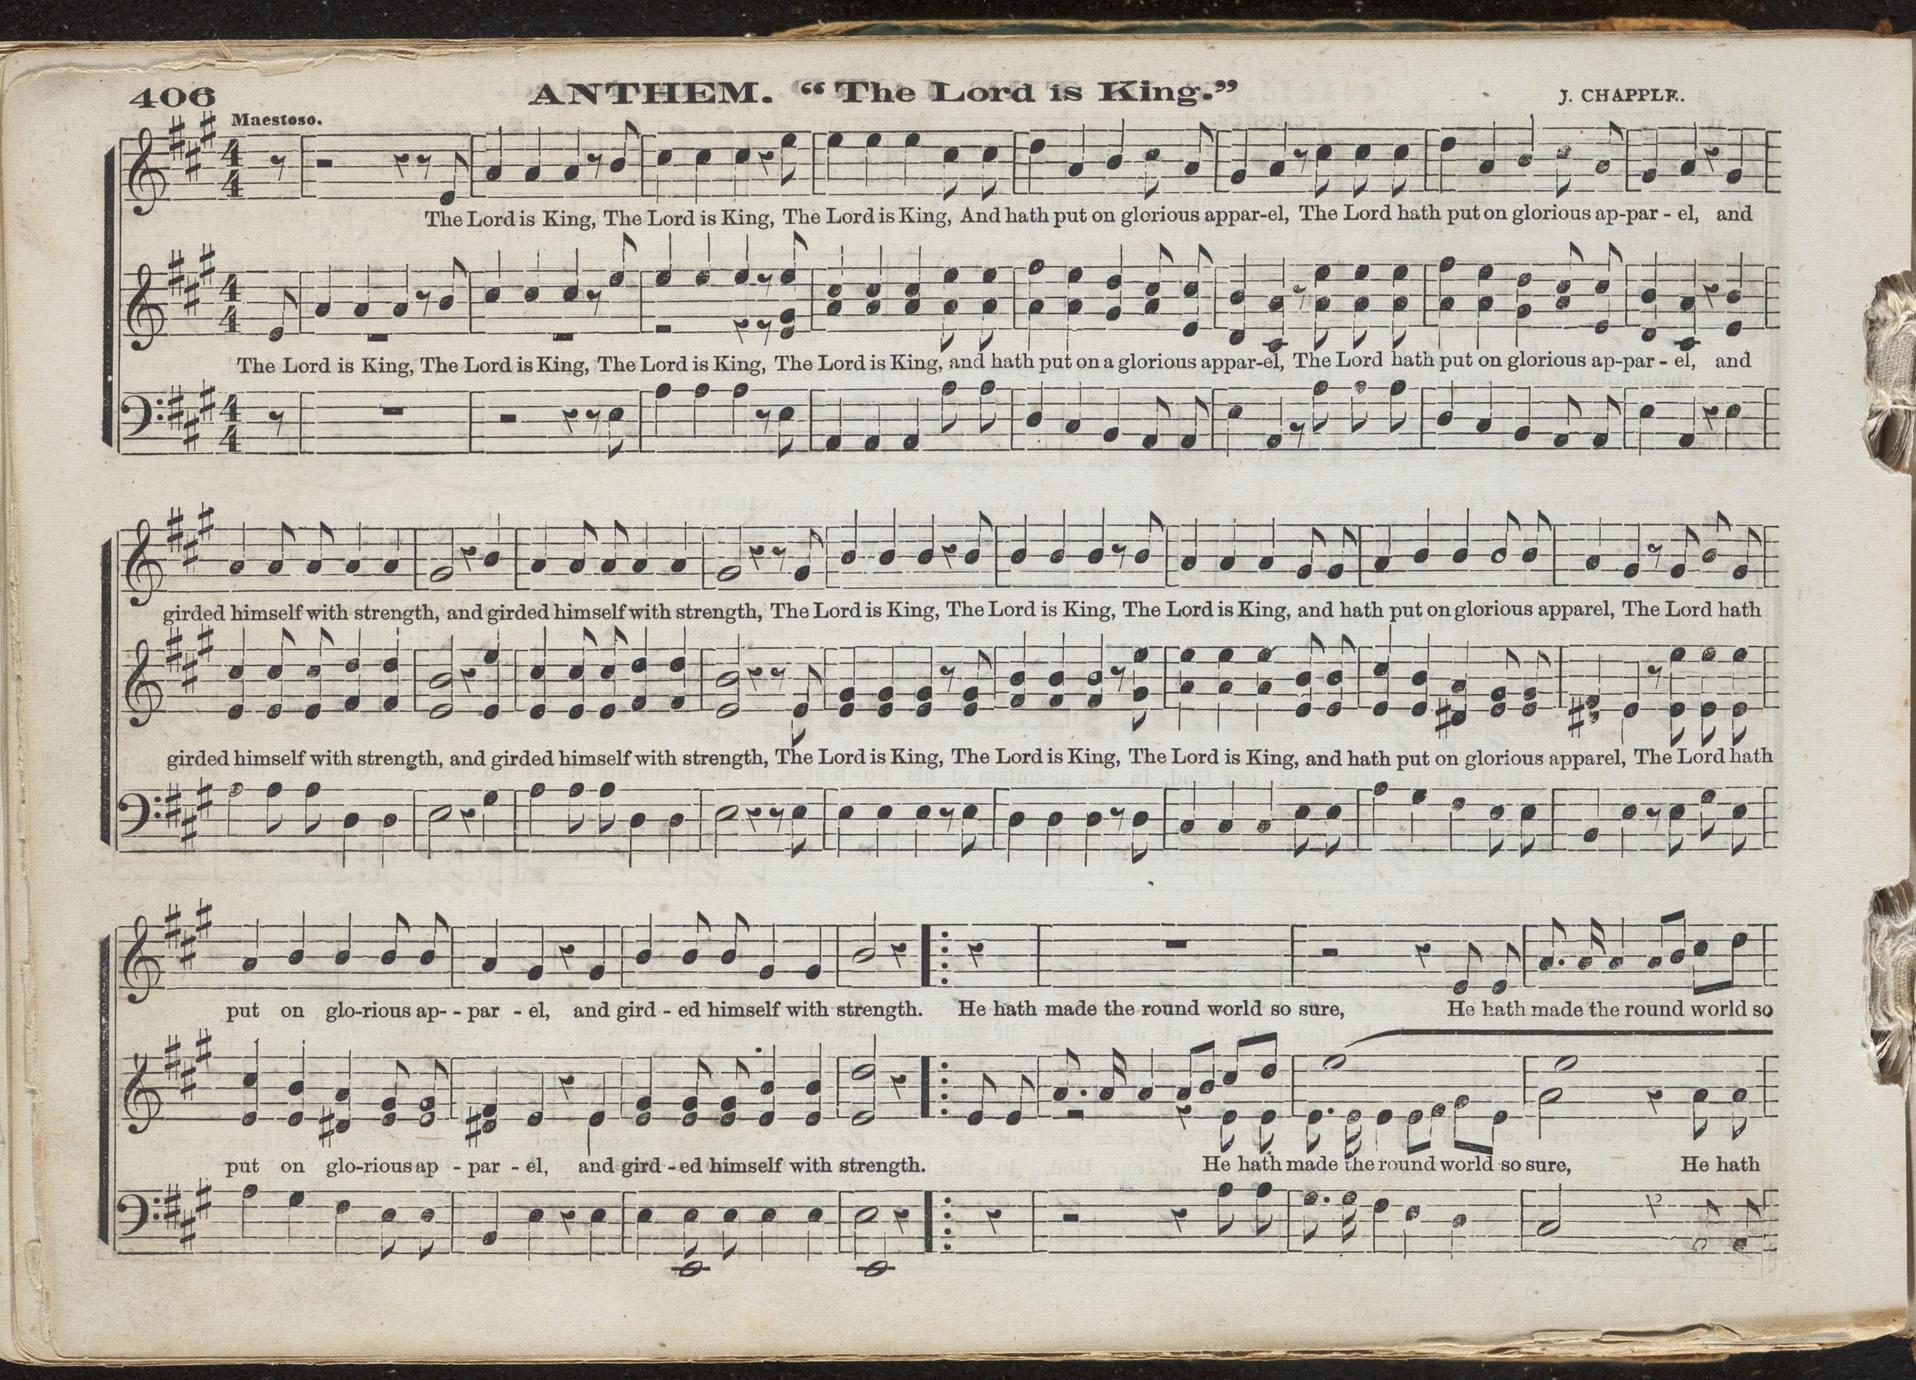 406 ANTHEM. “The Lord is King.” J. CHAPPLE.
Maestoso.
The Lord is King, The Lord is King, The Lord is King, And hath put on glorious appar-el, The Lord hath put on glorious ap-par - el, and
The Lord is King, The Lord is King, The Lord is King, The Lord is King, and hath put on a glorious appar-el, The Lord hath put on glorious ap-par - el, and
girded himself with strength, and girded himself with strength, The Lord is King, The Lord is King, The Lord is King, and hath put on glorious apparel, The Lord hath
girded himself with strength, and girded himself with strength, The Lord is King, The Lord is King, The Lord is King, and hath put on glorious apparel, The Lord hath
put on glo-rious ap- - par - el, and gird - ed himself with strength. He hath made the round world so sure, He hath made the round world so
put on glo-rious ap - par - el, and gird - ed himself with strength. He hath made the round world so sure, He hath